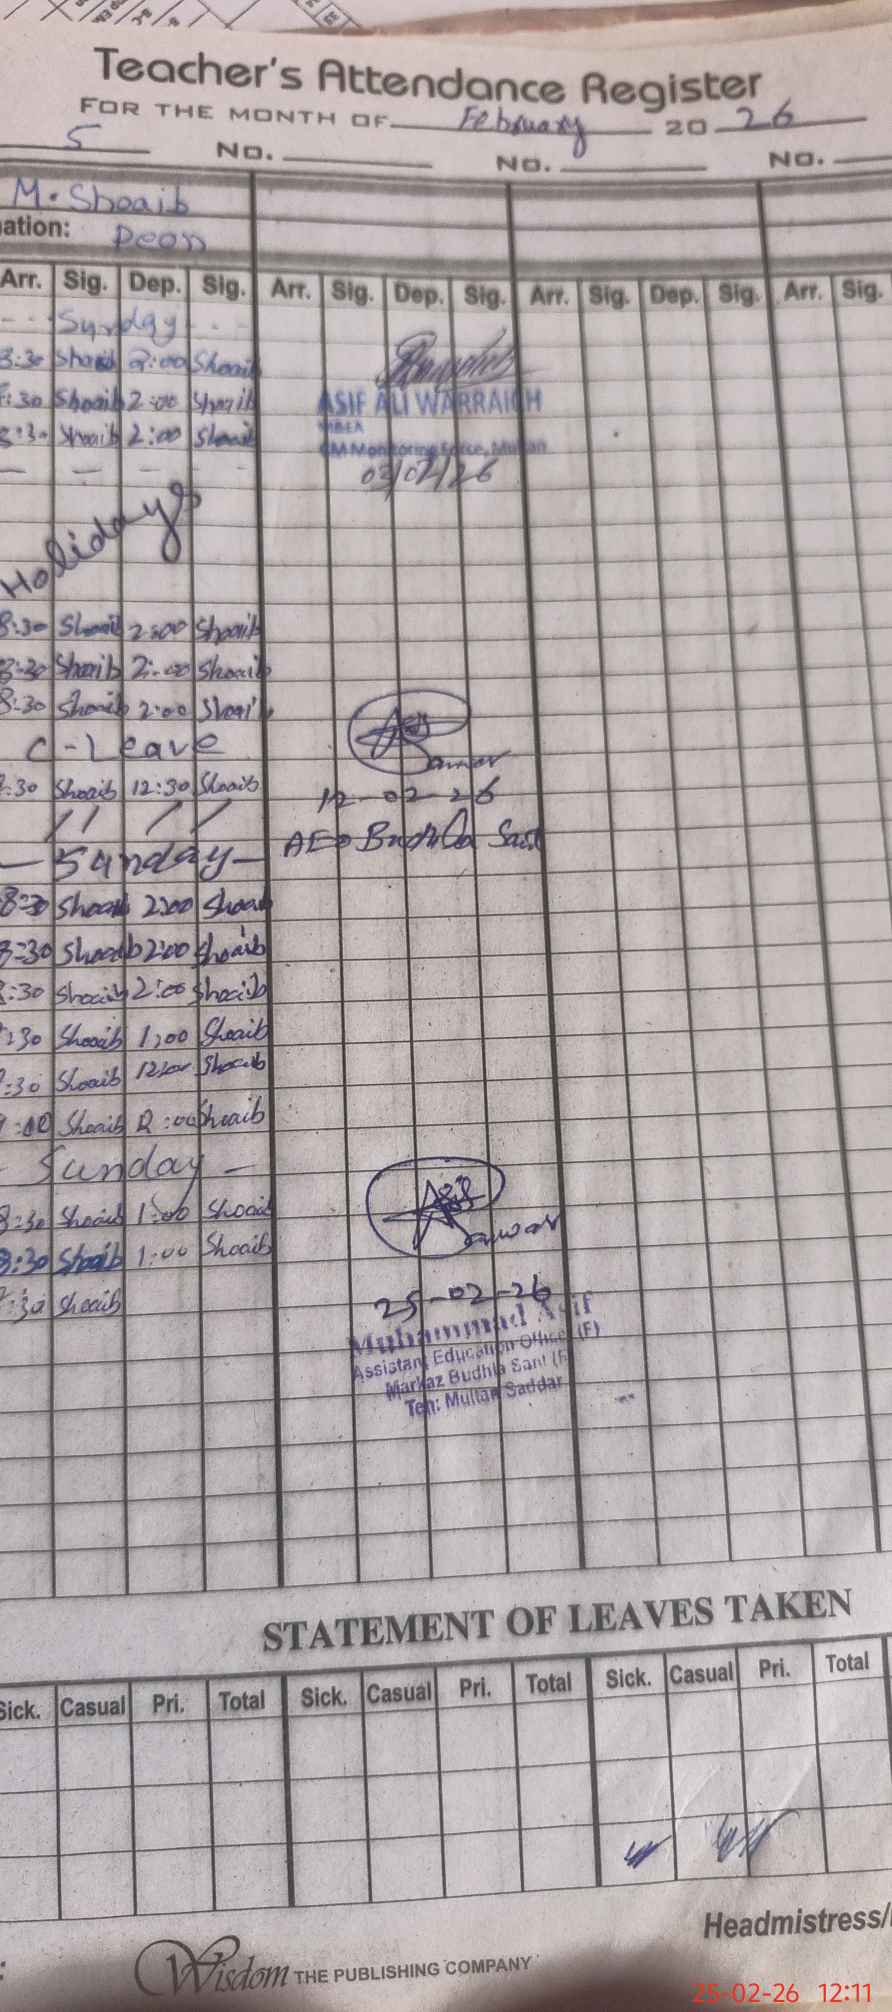 Teacher's Attendance Register
FOR THE MONTH OF February 2026
5 No. No. No.
M. Shoaib
ation: Peon
Arr. Sig. Dep. Sig. Arr. Sig. Dep. Sig. Arr. Sig. Dep. Sig. Arr. Sig.
Sunday
8:30 Shoaib 2:00 Shoaib
:30 Shoaib 2:00 Shoaib
ASIF ALI WARRAICH
8:30 Shoaib 2:00 Shoaib
MEA
CM Monitoring Force, Multan
03/02/26
Holidays
8:30 Shoaib 2:00 Shoaib
8:30 Shoaib 2:00 Shoaib
8:30 Shoaib 2:00 Shoaib
C-Leave
:30 Shoaib 12:30 Shoaib
12-02-26
// / /
- Sunday -
AEO Budhla Sant
8:30 Shoaib 2:00 Shoaib
8:30 Shoaib 2:00 Shoaib
:30 Shoaib 2:00 Shoaib
:30 Shoaib 1:00 Shoaib
:30 Shoaib Shoaib
:00 Shoaib 12:00 Shoaib
- Sunday -
8:30 Shoaib 1:00 Shoaib
Asif
8:30 Shoaib 1:00 Shoaib
Sarwar
:30 Shoaib
25-02-26
Muhammad Asif
Assistant Education Officer (F)
Markaz Budhla Sant (F)
Teh: Multan Saddar
STATEMENT OF LEAVES TAKEN
Sick. Casual Pri. Total Sick. Casual Pri. Total Sick. Casual Pri. Total
Headmistress/
Wisdom THE PUBLISHING COMPANY
25-02-26 12:11